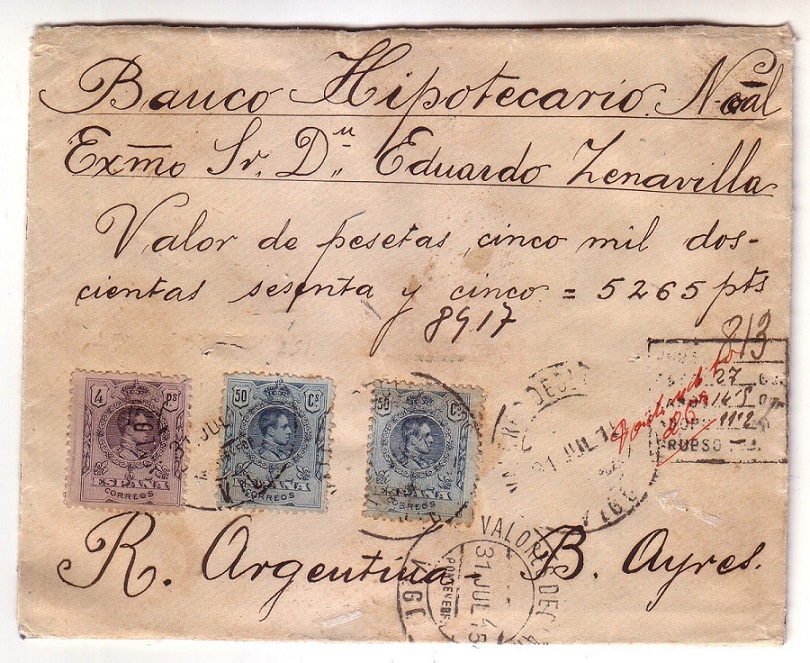 Banco Hipotecario. N.al
Exmo Sr. Dn. Eduardo Zenavilla
Valor de pesetas, cinco mil dos-
cientas sesenta y cinco = 5265 pts
8917
813
27
1192
4 Ps
ESPAÑA
CORREOS
50 Cs
ESPAÑA
CORREOS
50 Cs
ESPAÑA
CORREOS
31 JUL
VIGO
R. Argentina - B. Ayres.
VALORES DEC
31 JUL 15
PONTEVEDRA